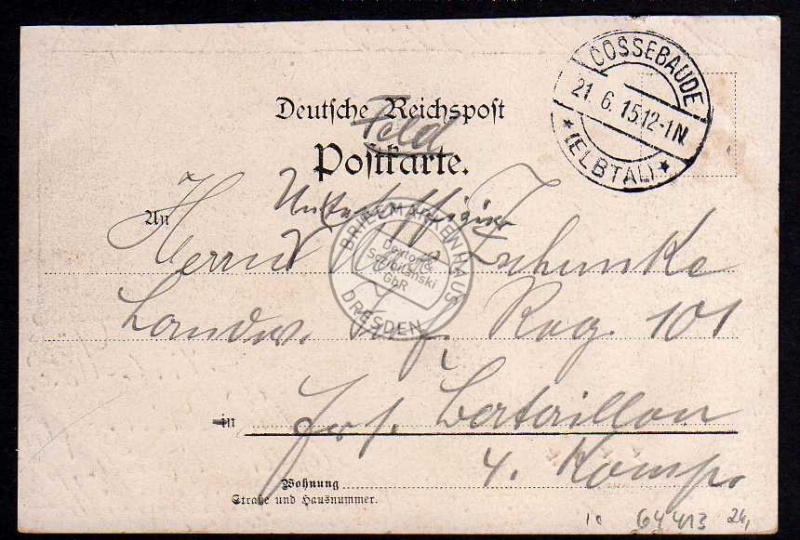 COSSEBAUDE
21. 6. 15.12-1N.
★ (ELBTAL) ★
Deutsche Reichspost
Feld
Postkarte.
Unteroffizier
An
Herrn Zschunke
Landw. Inf. Reg. 101
BRIEFMARKENHAUS
Deuton &
Szabitanski
GbR
DRESDEN
in
Ers. Bataillon
4. Komp.
Wohnung
Straße und Hausnummer.
10 64413 24,